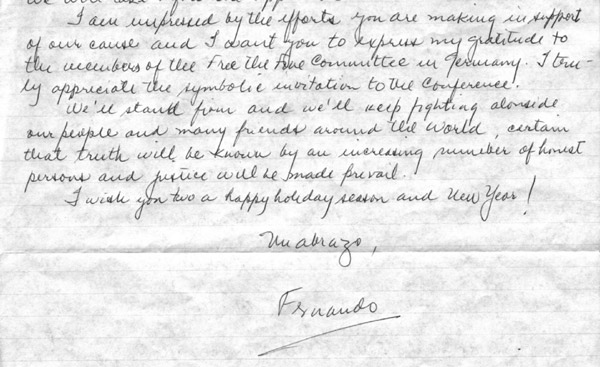 I am impressed by the efforts you are making in support
of our cause and I want you to express my gratitude to
the members of the Free the Five Committee in Germany. I tru-
ly appreciate the symbolic invitation to the Conference.
We'll stand firm and we'll keep fighting alonside
our people and many friends around the world, certain
that truth will be known by an increasing number of honest
persons and justice will be made prevail.
I wish you two a happy holiday season and New Year!
Un abrazo,
Fernando